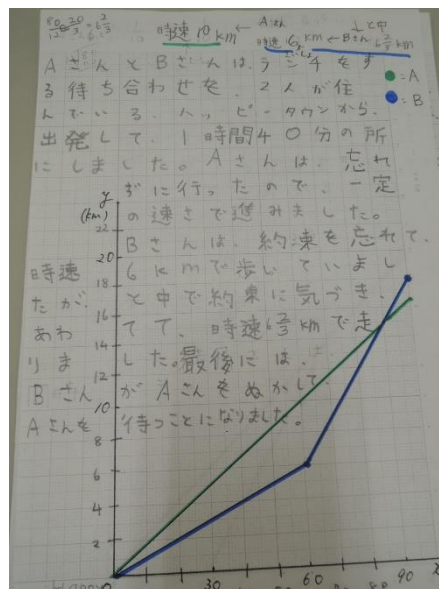 時速10km ← Aさん
時速6km ← Bさん
AさんとBさんは、ランチをす
る待ち合わせを、2人が住
んでいる、ハッピータウンから、
出発して、1時間40分の所
にしました。Aさんは、忘れ
ずに行ったので、一定
の速さで進みました。
Bさんは、約束を忘れて、
時速6kmで歩いていまし
たが、と中で約束に気づき、
あわてて、時速6⅔kmで走
りました。最後には、
BさんがAさんをぬかして
Aさんを待つことになりました。
●:A
●:B
y
(km)
22
20
18
16
14
12
10
8
6
4
2
30
60
90